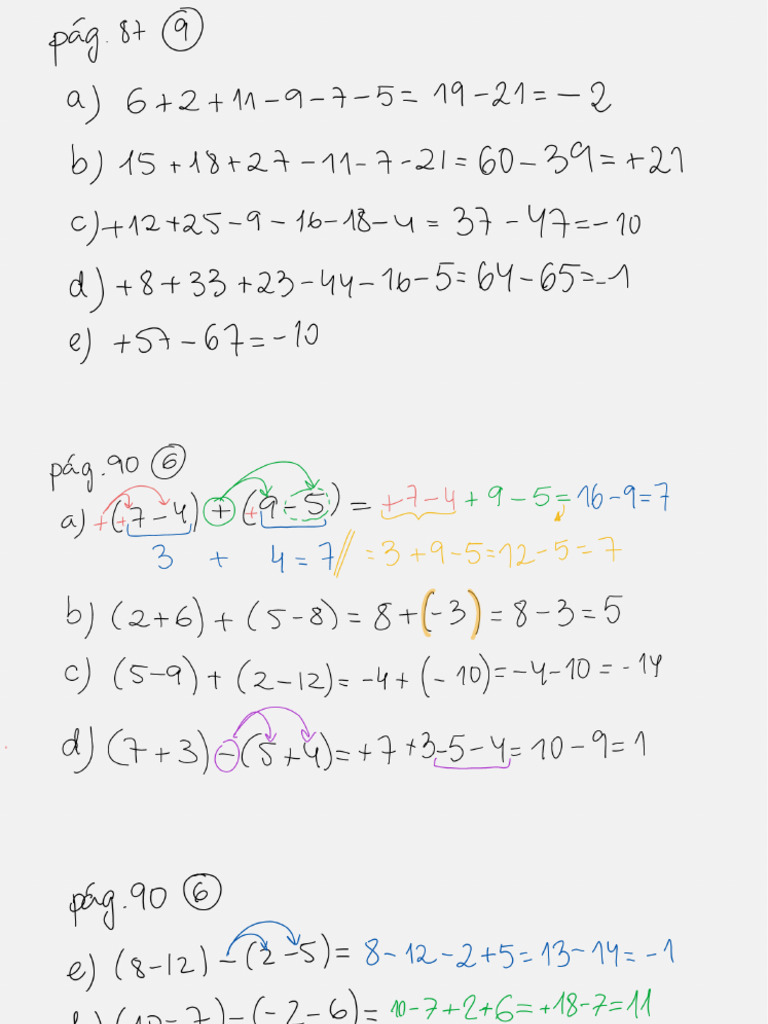 pág. 87 ⑨
a) 6+2+11-9-7-5= 19-21=-2
b) 15+18+27-11-7-21=60-39=+21
c) +12+25-9-16-18-4=37-47=-10
d) +8+33+23-44-16-5=64-65=-1
e) +57-67=-10
pág. 90 ⑥
a) +(+7-4)+(+9-5)=+7-4+9-5=16-9=7
3 + 4=7// =3+9-5=12-5=7
b) (2+6)+(5-8)=8+(-3)=8-3=5
c) (5-9)+(2-12)=-4+(-10)=-4-10=-14
d) (7+3)-(5+4)=+7+3-5-4=10-9=1
pág. 90 ⑥
e) (8-12)-(2-5)=8-12-2+5=13-14=-1
(10-7)-(-2-6)=10-7+2+6=+18-7=11